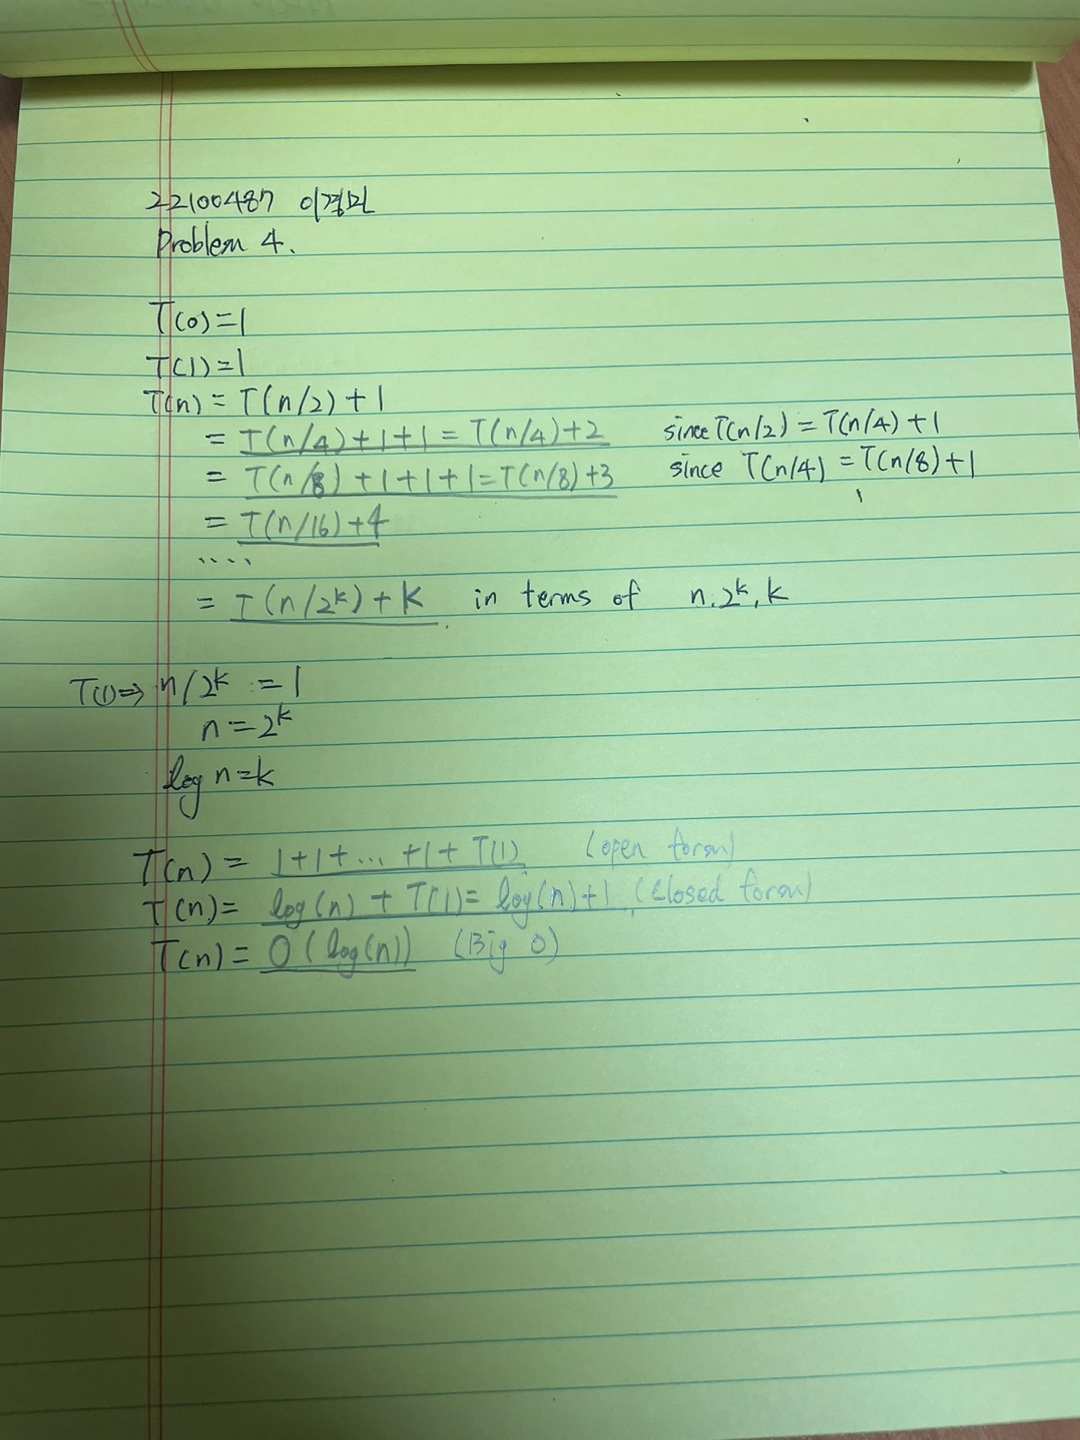 22100487 이경민
Problem 4.
T(0)=1
T(1)=1
T(n) = T(n/2)+1
= T(n/4)+1+1 = T(n/4)+2 since T(n/2) = T(n/4)+1
= T(n/8)+1+1+1=T(n/8)+3 since T(n/4) = T(n/8)+1
= T(n/16)+4
....
= T(n/2^k)+k in terms of n, 2^k, k
T(1)⇒ n/2^k = 1
n=2^k
log n=k
T(n) = 1+1+... +1+T(1) (open form)
T(n)= log(n) + T(1)= log(n)+1 (closed form)
T(n)= O(log(n)) (Big O)